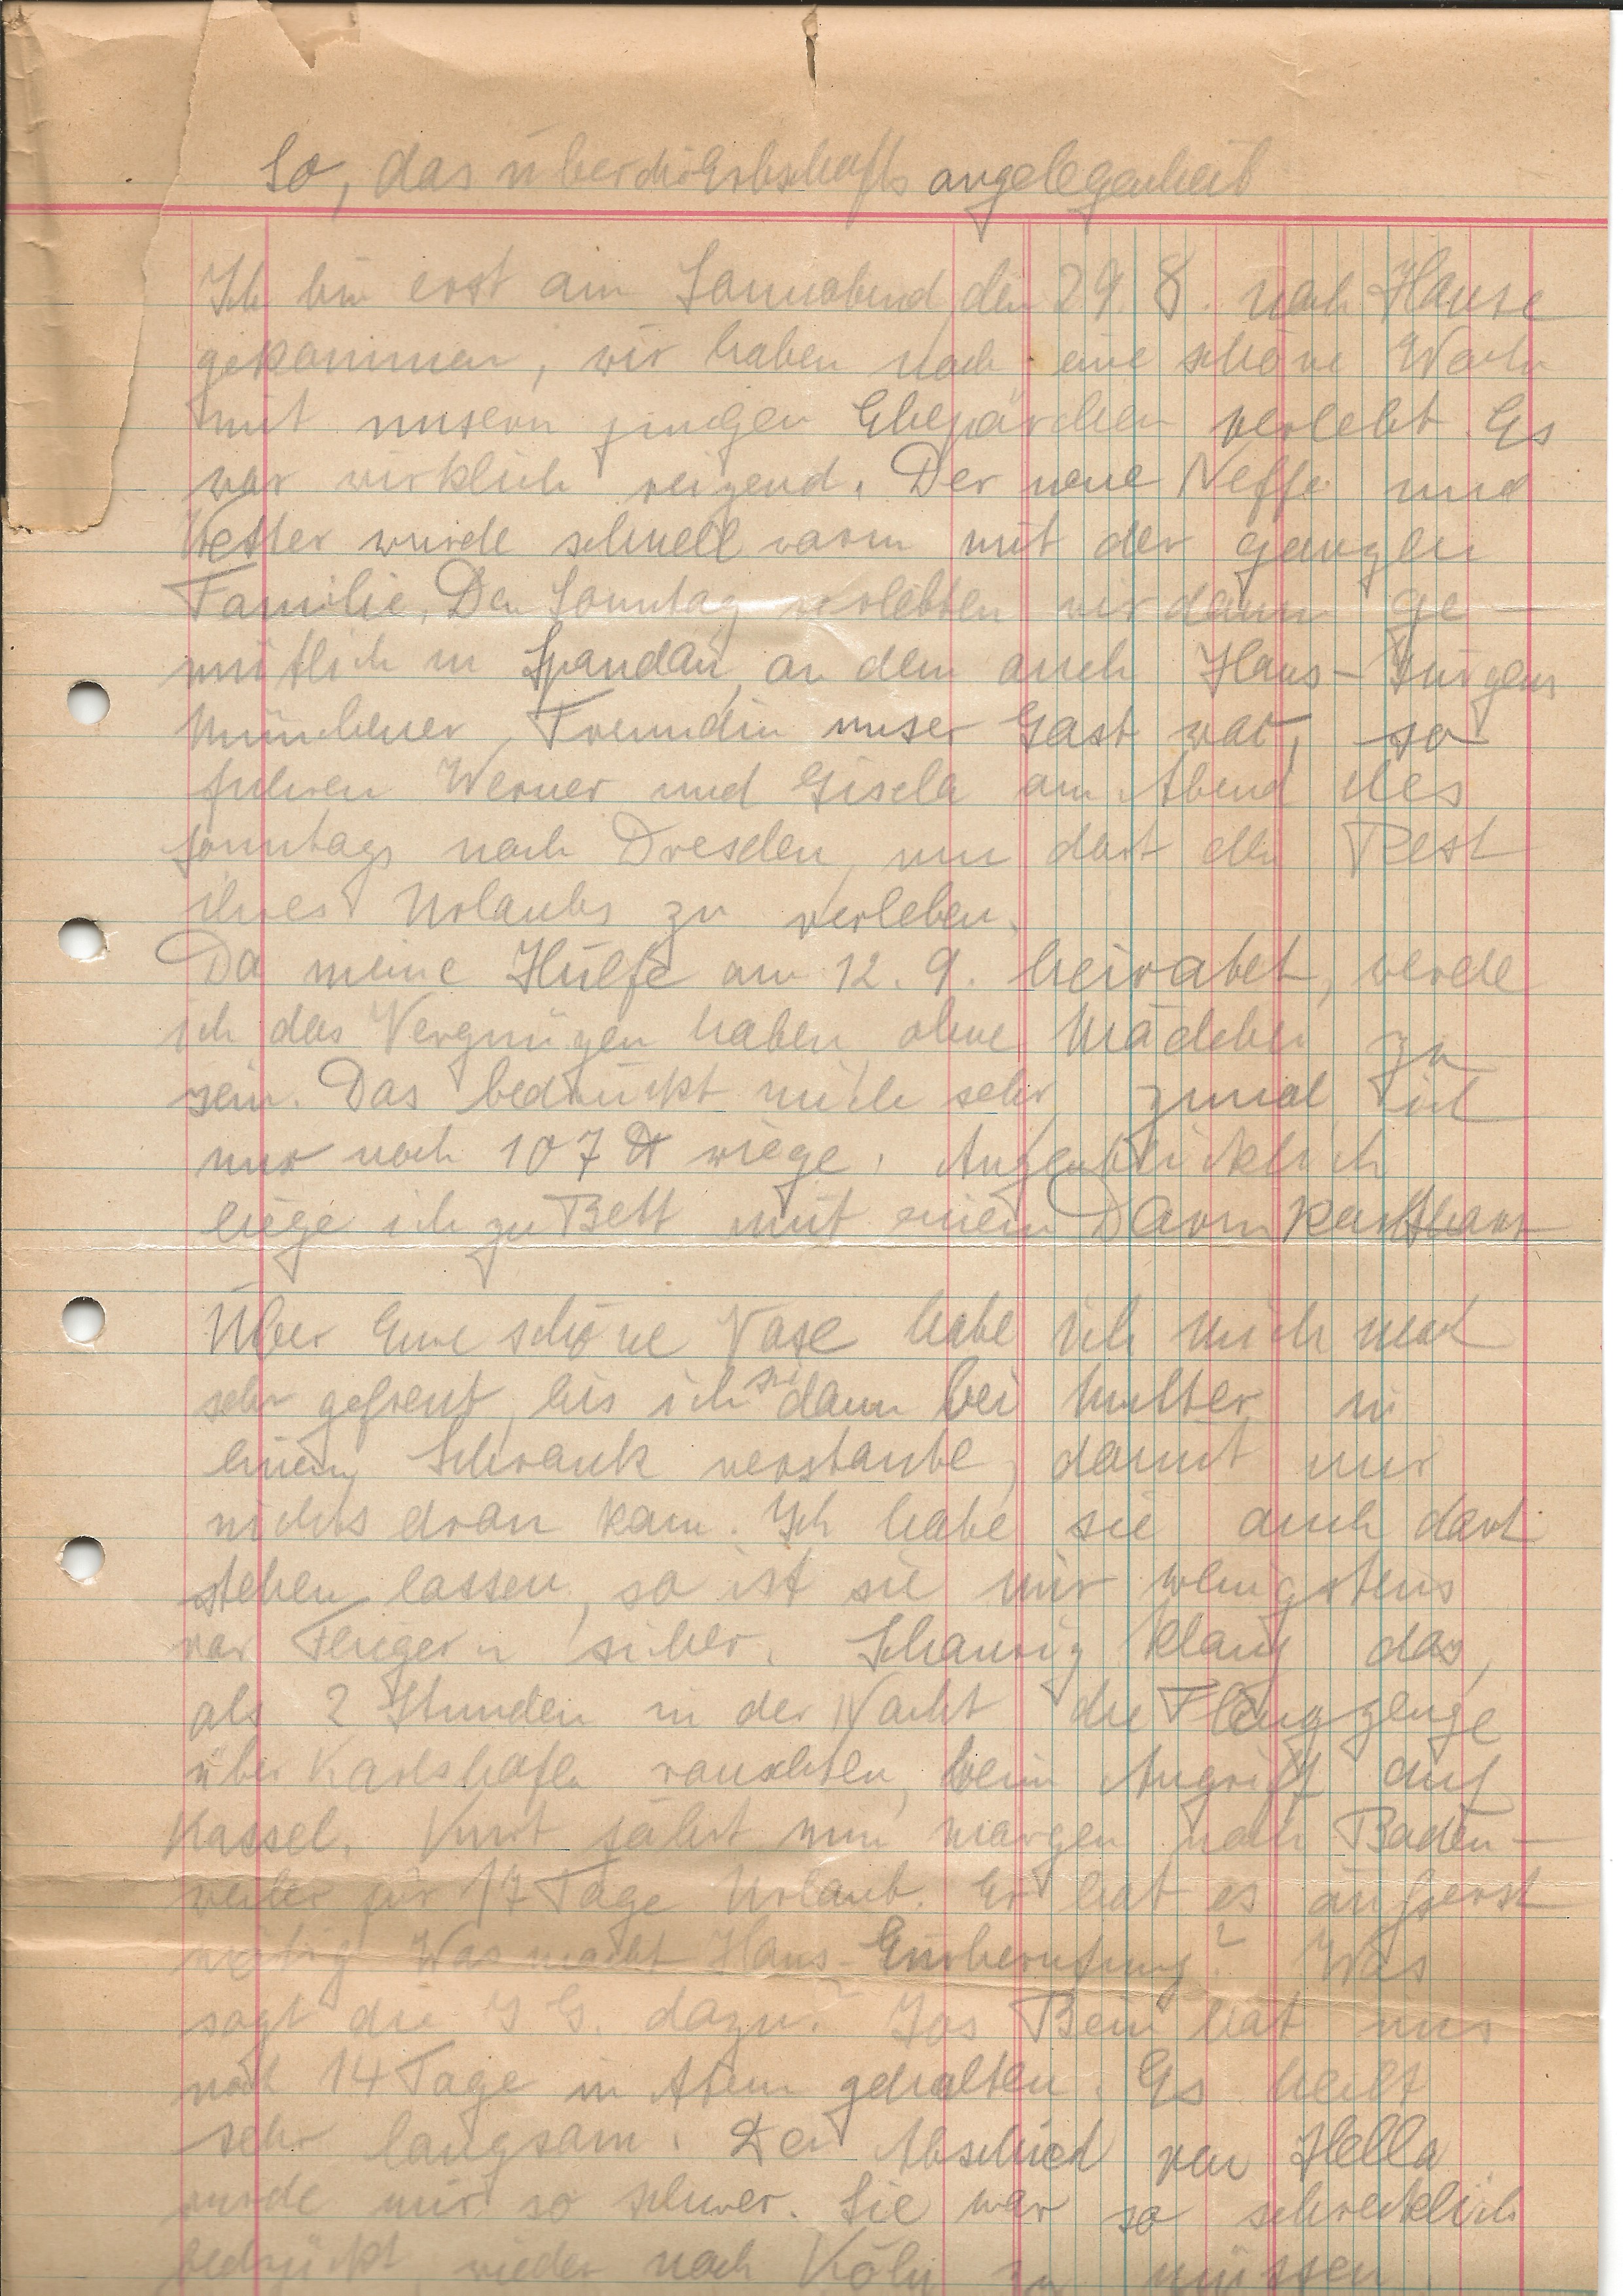 So, das über die Erbschaftsangelegenheit
Ich bin erst am Sonnabend, den 29. 8. nach Hause
gekommen, wir haben noch eine schöne Woche
mit unsern jungen Ehepärchen verlebt. Es
war wirklich reizend. Der neue Neffe und
Vetter wurde schnell warm mit der ganzen
Familie. Den Sonntag verlebten wir dann ge-
mütlich in Spandau, an dem auch Hans-Jürgens
Münchener Freundin unser Gast war, so
fuhren Werner und Gisela am Abend des
Sonntags nach Dresden, um dort den Rest
ihres Urlaubs zu verleben.
Da meine Hülfe am 12. 9. heiratet, werde
ich das Vergnügen haben, ohne Mädchen zu
sein. Das bedrückt mich sehr, zumal ich
nur noch 107 ℔ wiege. Augenblicklich
liege ich zu Bett mit einem Darmkatharr
Über Eure schöne Vase habe ich mich noch
sehr gefreut, bis ich sie dann bei Mutter in
einem Schrank verstaute, damit nur
nichts dran kam. Ich habe sie auch dort
stehen lassen, so ist sie mir wenigstens
vor Fliegern sicher. Schaurig klang das,
als 2 Stunden in der Nacht die Flugzeuge
über Karlshafen rauschten, beim Angriff auf
Kassel. Kurt fährt nun morgen nach Baden-
weiler für 17 Tage Urlaub. Er hat es äußerst
nötig. Was macht Hans Einberufung? Was
sagt die I G. dazu? Jos Bein hat uns
noch 14 Tage in Atem gehalten. Es heilt
sehr langsam. Der Abschied von Hella
wurde mir so schwer. Sie war so schrecklich
bedrückt, wieder nach Köln zu müssen.